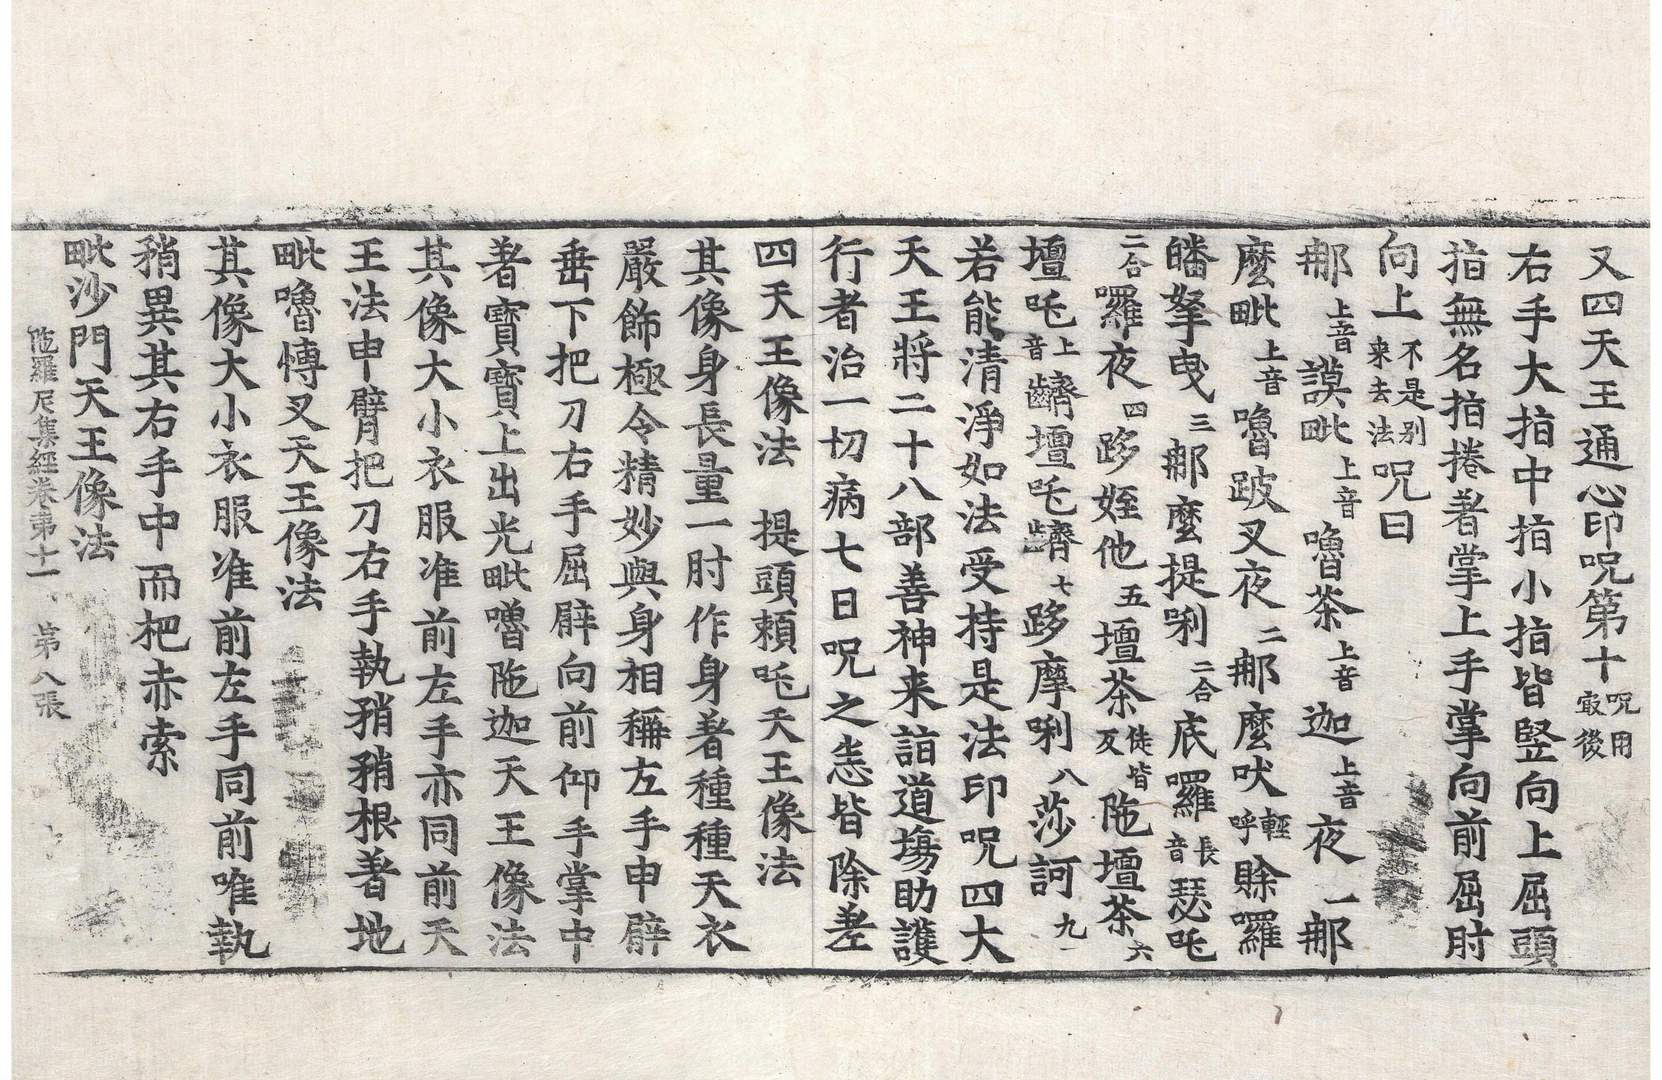 又四天王通心印呪第十呪用㝡後
右手大指中指小指皆竪向上屈頭
指無名指捲著掌上手掌向前屈肘
向上不是別来去法呪曰
那上音謨毗上音嚕茶上音迦上音夜一那
麼毗上音嚕跛叉夜二那麼吠輕呼賖羅
皤拏曳三那麼提唎二合底囉長音瑟吒
二合羅夜四跢姪他五壇茶徒皆反陁壇茶六
壇吒上音齭壇吒齭七跢摩唎八莎訶九
若能清淨如法受持是法印呪四大
天王將二十八部善神来詣道塲助護
行者治一切病七日呪之恙皆除差
四天王像法　提頭賴吒天王像法
其像身長量一肘作身著種種天衣
嚴飾極令精妙與身相稱左手申臂
垂下把刀右手屈臂向前仰手掌中
著寶寶上出光毗嚕陁迦天王像法
其像大小衣服准前左手亦同前天
王法申臂把刀右手執矟矟根著地
毗嚕慱叉天王像法
其像大小衣服准前左手同前唯執
矟異其右手中而把赤索
毗沙門天王像法
陁羅尼集經卷第十一　第八張